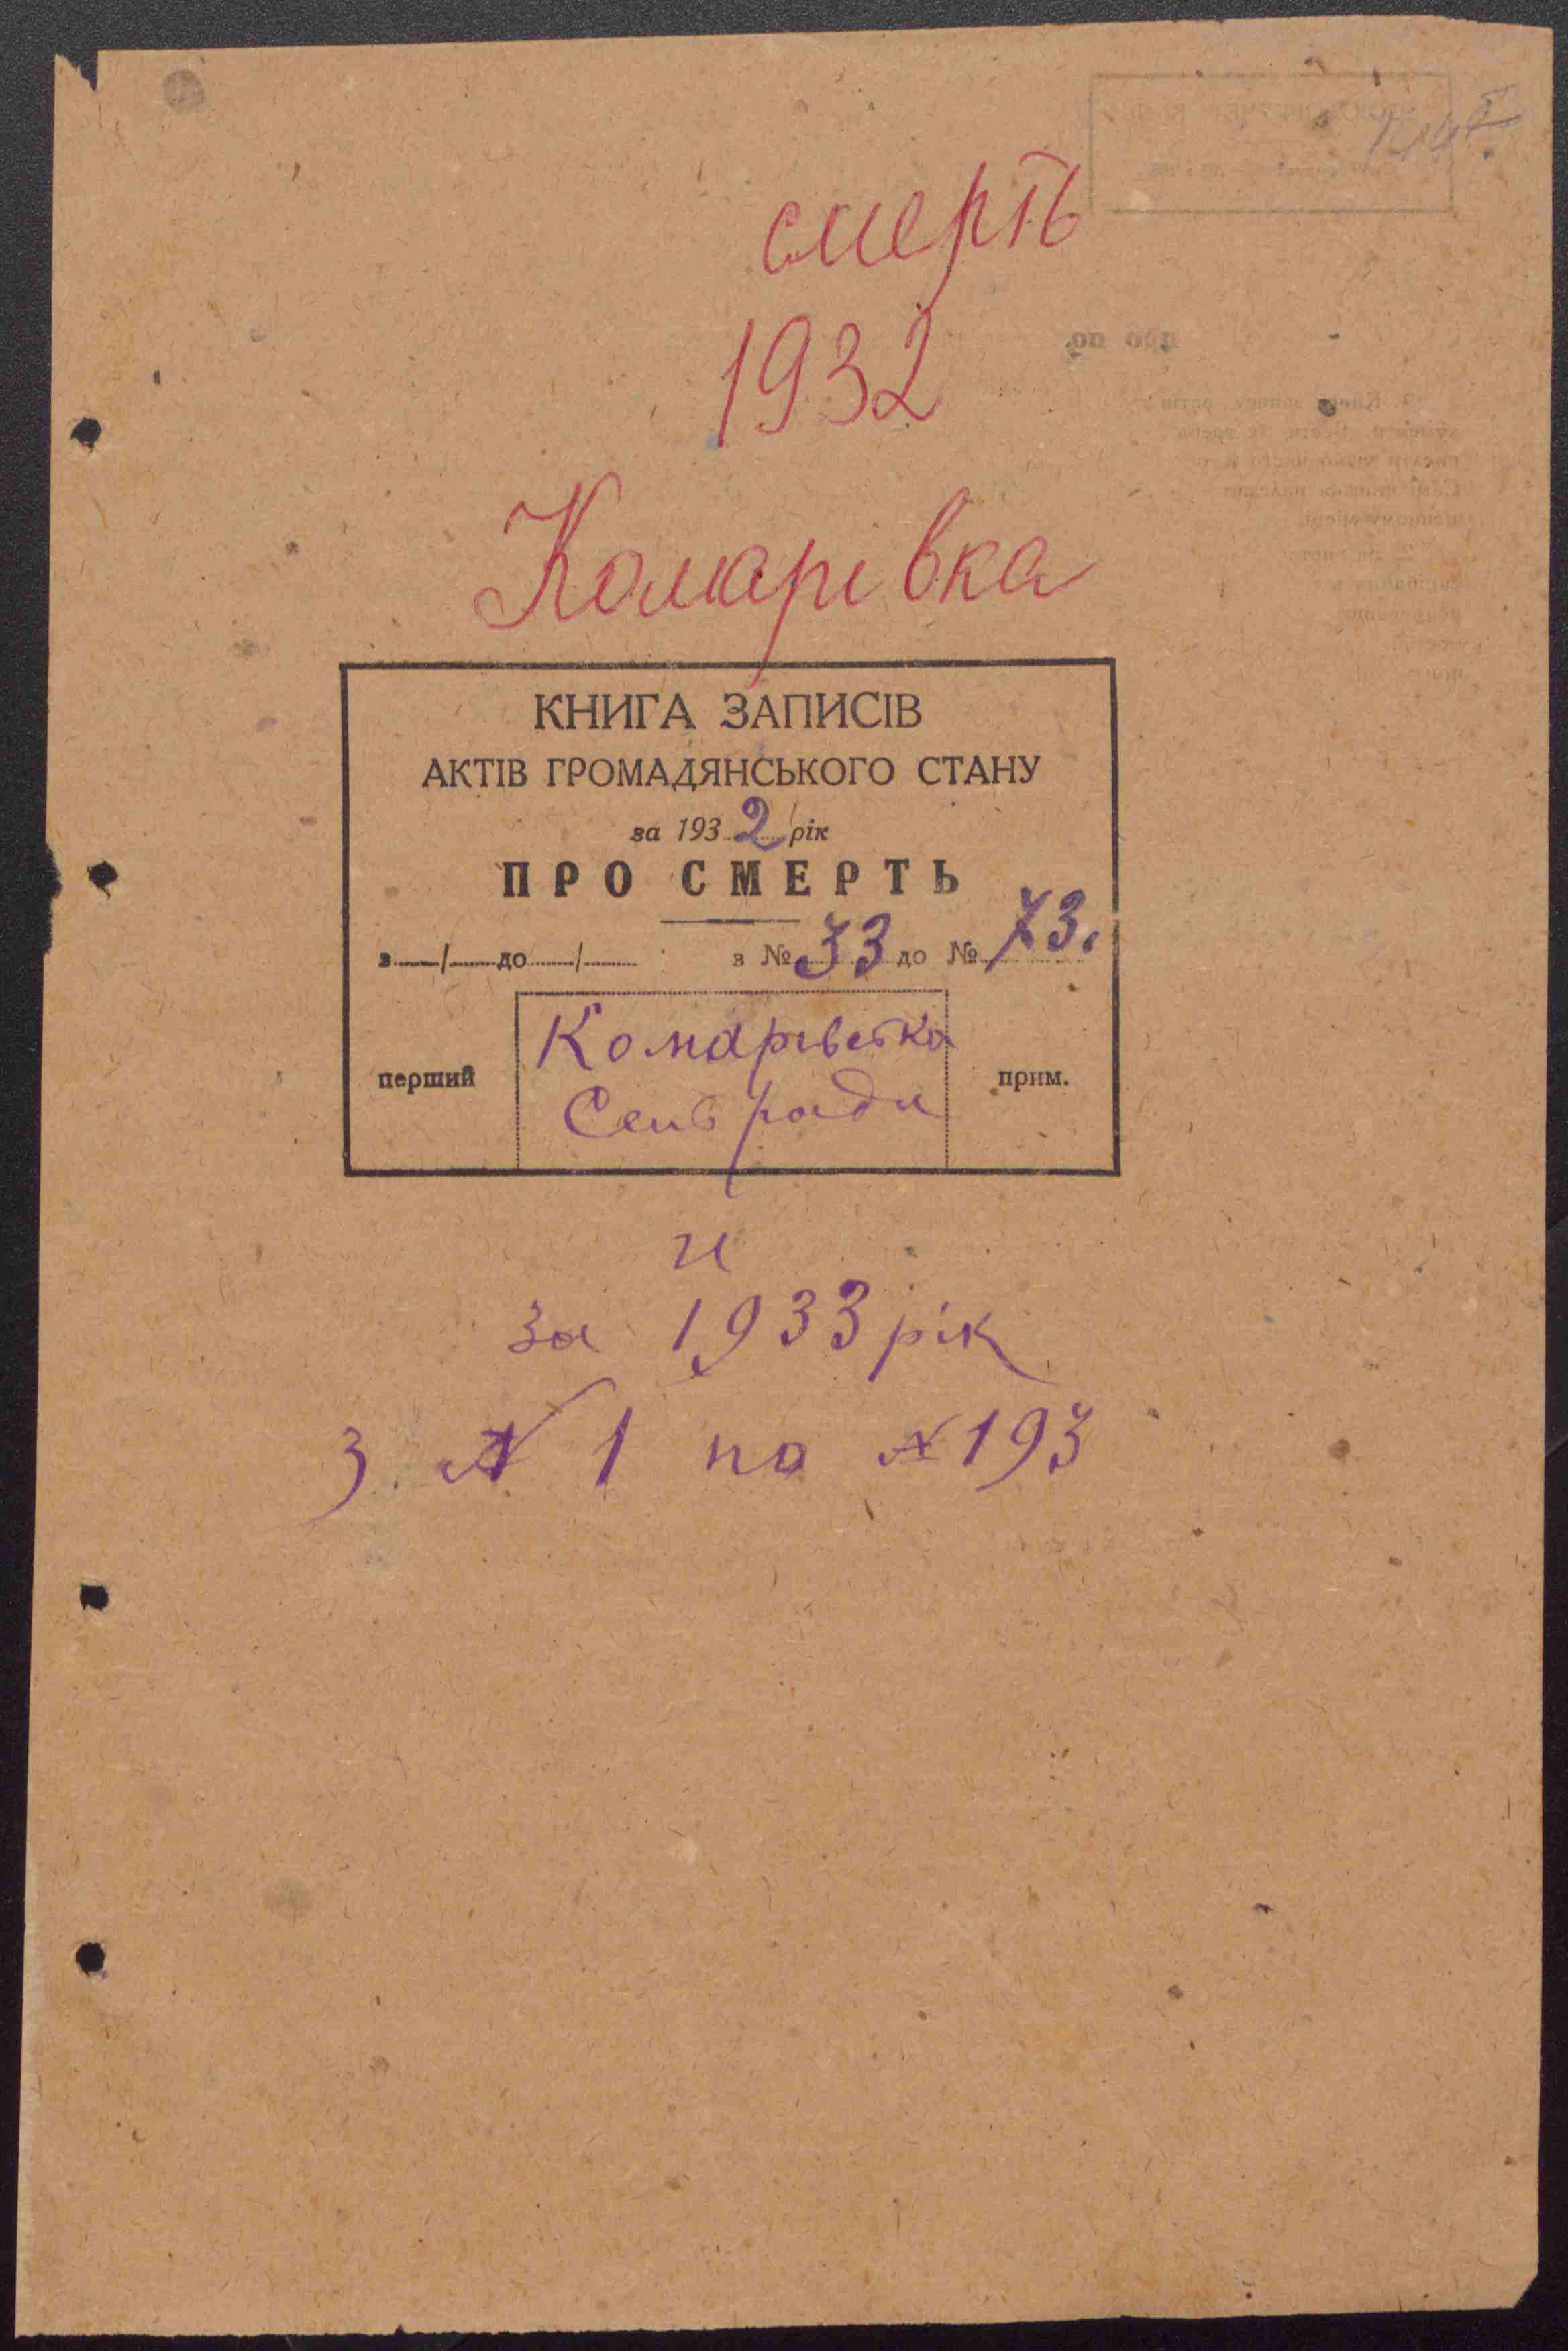 смерть
1932
Комарівка
КНИГА ЗАПИСІВ
АКТІВ ГРОМАДЯНСЬКОГО СТАНУ
за 1932 рік
ПРО СМЕРТЬ
з —/— до —/— з № 33 до № 73.
перший Комарівська прим.
Сельрада
и
за 1933 рік
з № 1 по № 193